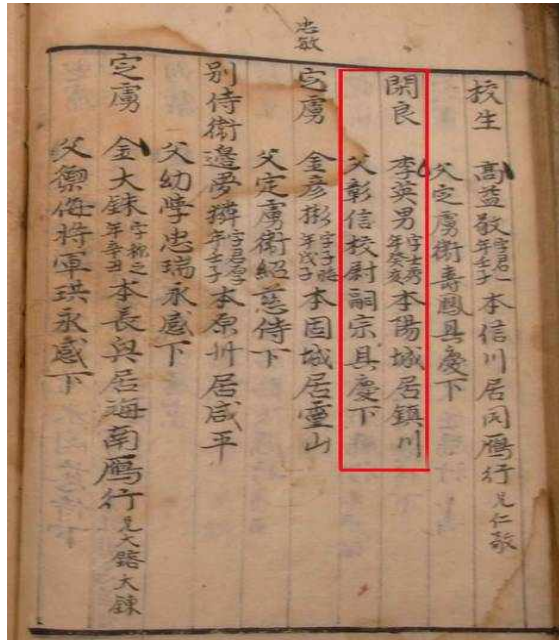 忠敏
校生 高益敬 字君一 年壬子 本信川居同鴈行 兄仁敬
父定虜衛壽鳳具慶下
閑良 李英男 字士秀 年癸亥 本陽城居鎮川
父彰信校尉嗣宗具慶下
定虜 金彦彬 年戊子 本固城居靈山
父定虜衛紹慈侍下
別侍衛邊夢獜 年壬子 本原州居咸平
父幼學忠瑞永感下
定虜 金大鋉 年辛丑 本長興居海南鴈行 兄大鎔大鍊
父禦侮將軍珙永感下